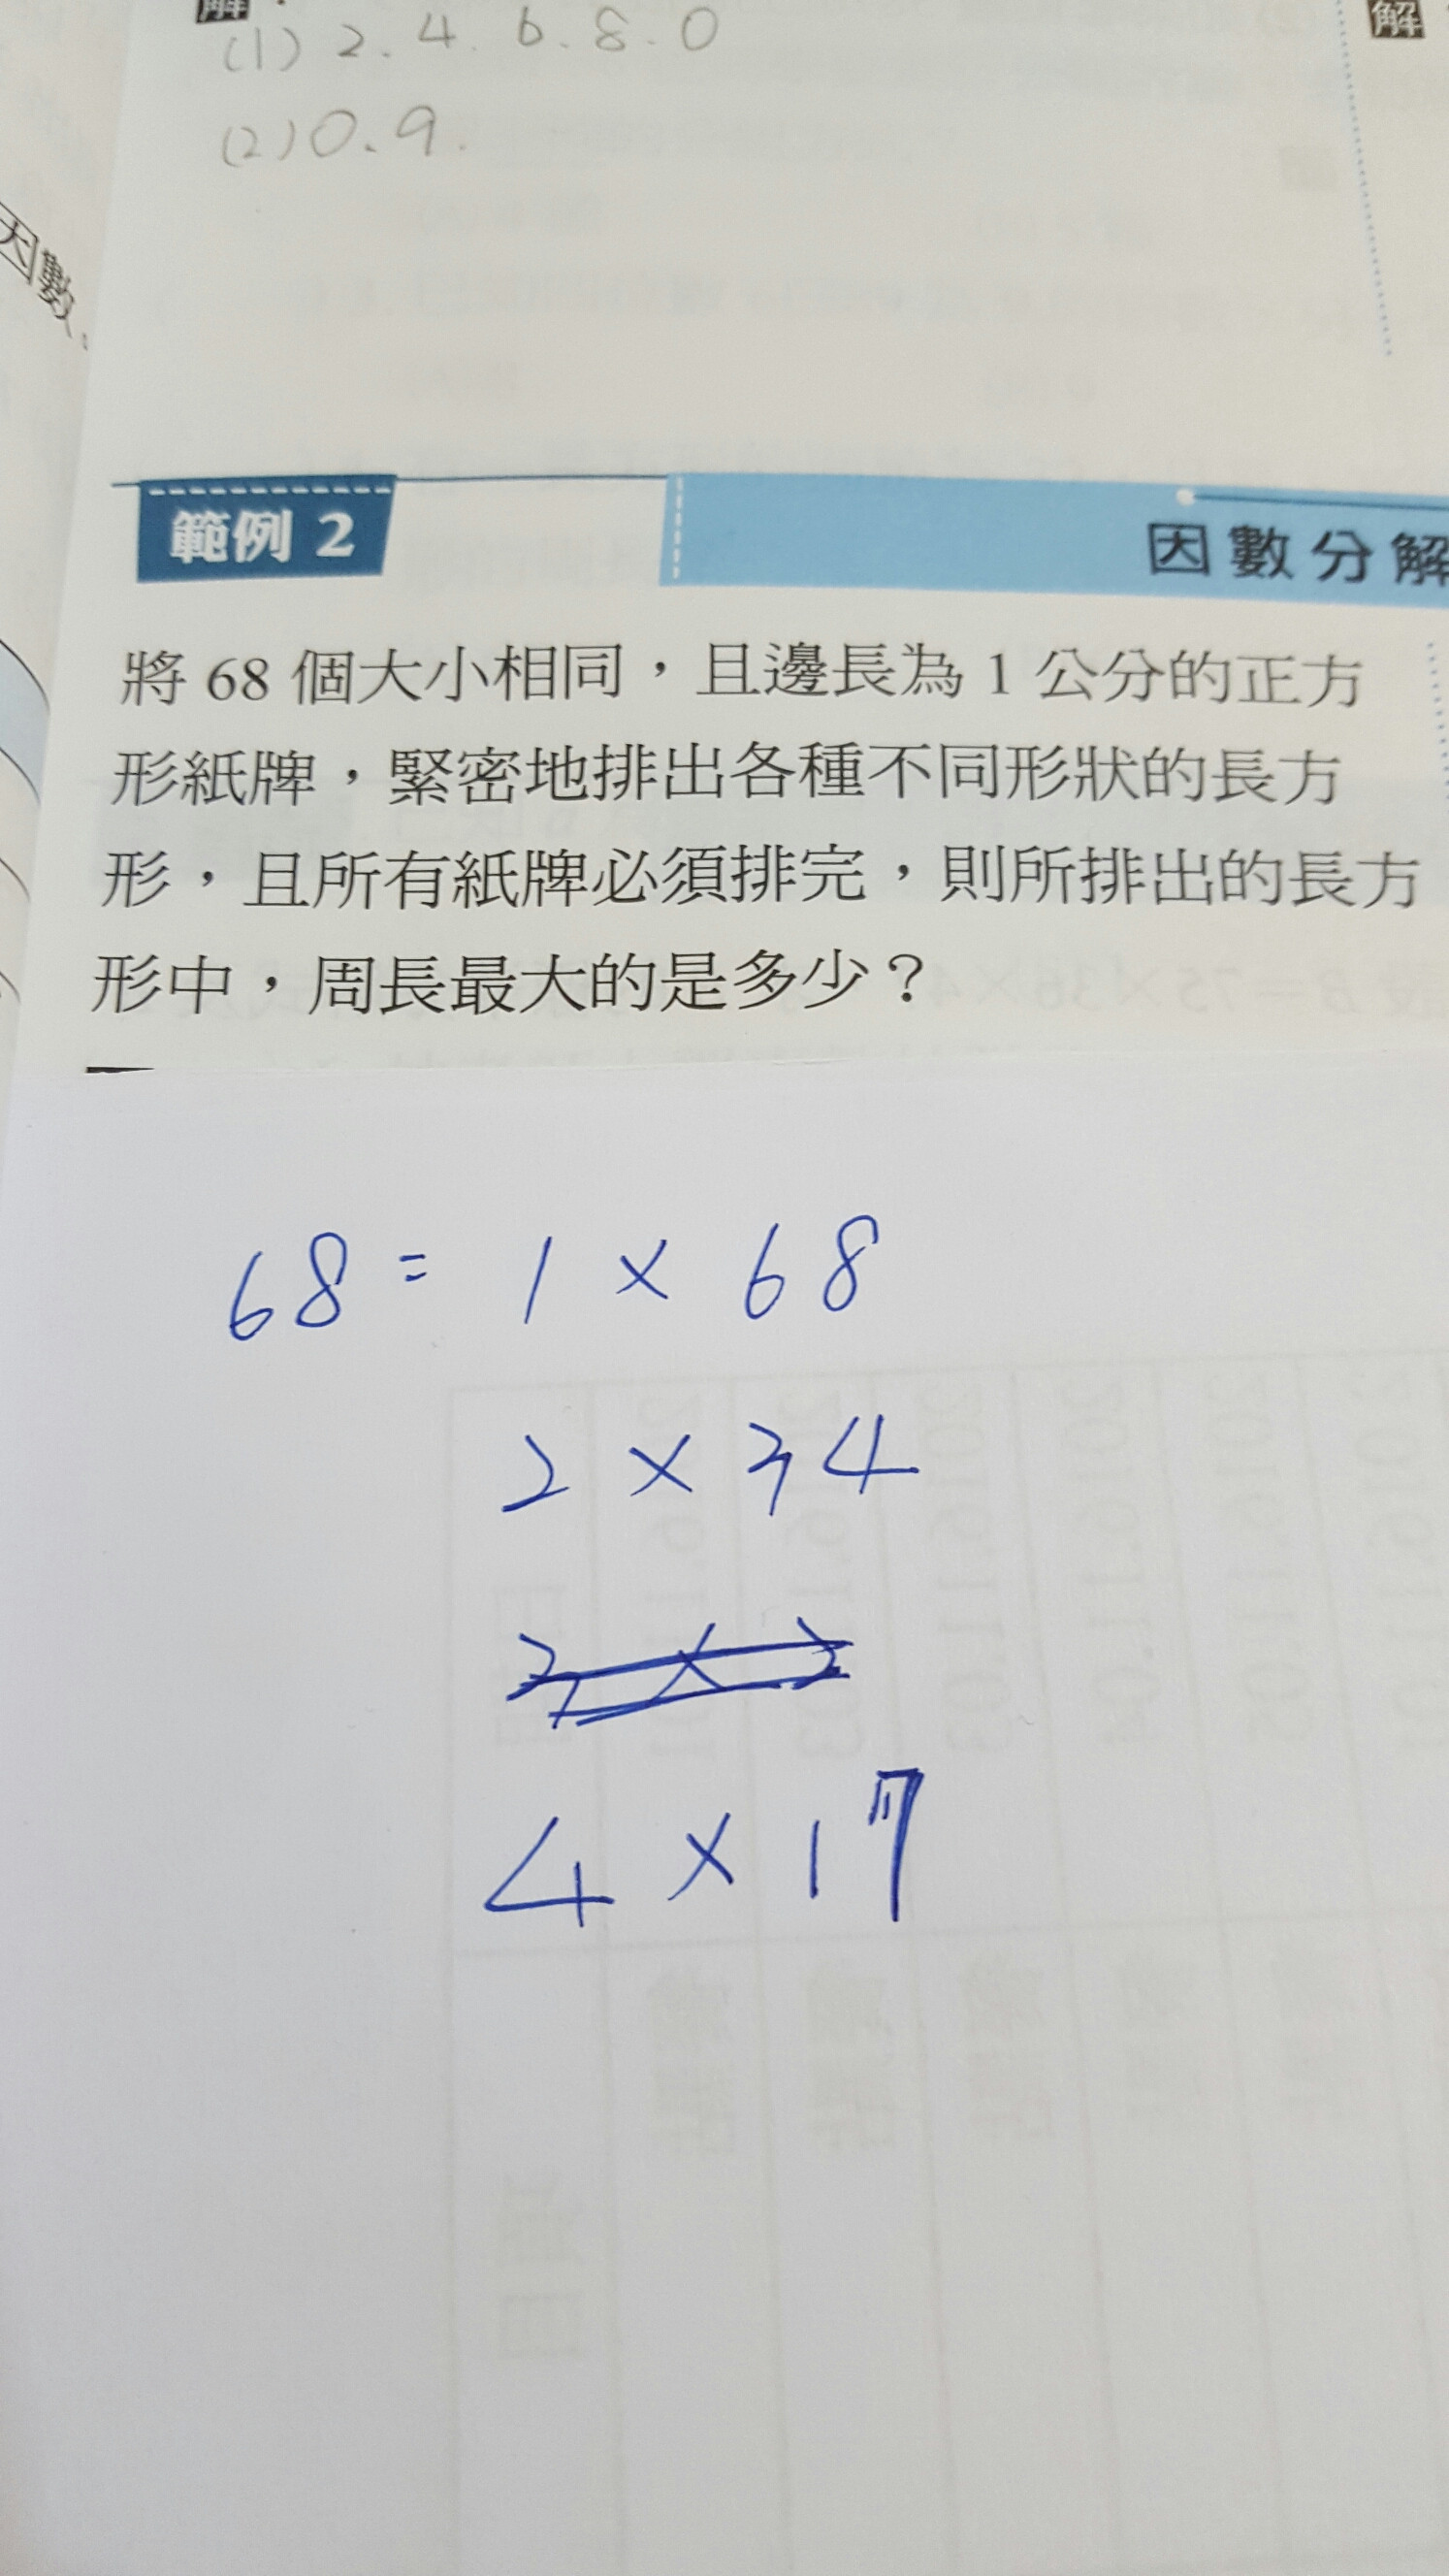 解
解
(1) 2. 4. 6. 8. 0
(2) 0. 9.
因數。
範例 2
因數分解
將 68 個大小相同，且邊長為 1 公分的正方
形紙牌，緊密地排出各種不同形狀的長方
形，且所有紙牌必須排完，則所排出的長方
形中，周長最大的是多少？
68 = 1 × 68
2 × 34
4 × 17